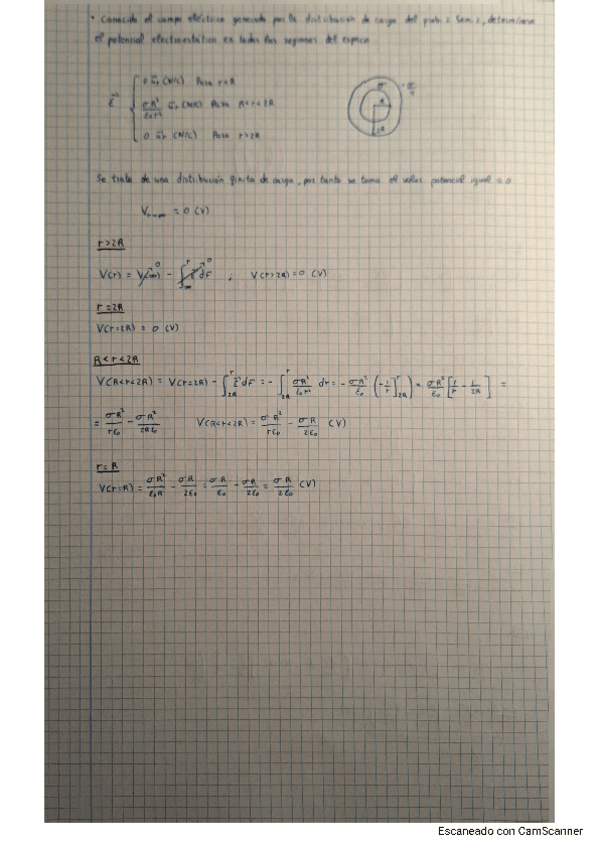 • Conocido el campo eléctrico generado por la distribución de carga del prob. 2 Sem. 2, determínese
el potencial electrostático en todas las regiones del espacio
0 ûr (N/C) Para r<R
E⃗ { σR²/ε₀r² ûr (N/C) Para R<r<2R
0 ûr (N/C) Para r>2R
σ
-σ/4
R
2R
Se trata de una distribución finita de carga, por tanto se toma el valor potencial igual a 0
= 0 (V)
r>2R
V(r) = V(∞) - ∫_∞^r E⃗ dr⃗ ; V(r>2R)=0 (V)
0
0
r=2R
V(r=2R) = 0 (V)
R<r<2R
V(R<r<2R) = V(r=2R) - ∫_2R^r E⃗ dr⃗ = - ∫_2R^r σR²/ε₀r² dr = - σR²/ε₀ (-1/r)_2R^r = σR²/ε₀ [1/r - 1/2R] =
= σR²/rε₀ - σR²/2Rε₀ V(R<r<2R) = σR²/rε₀ - σR/2ε₀ (V)
r=R
V(r=R) = σR²/ε₀R - σR/2ε₀ = σR/ε₀ - σR/2ε₀ = σR/2ε₀ (V)
Escaneado con CamScanner